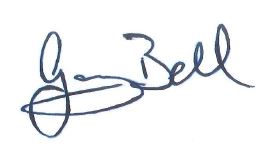 Gary Bell